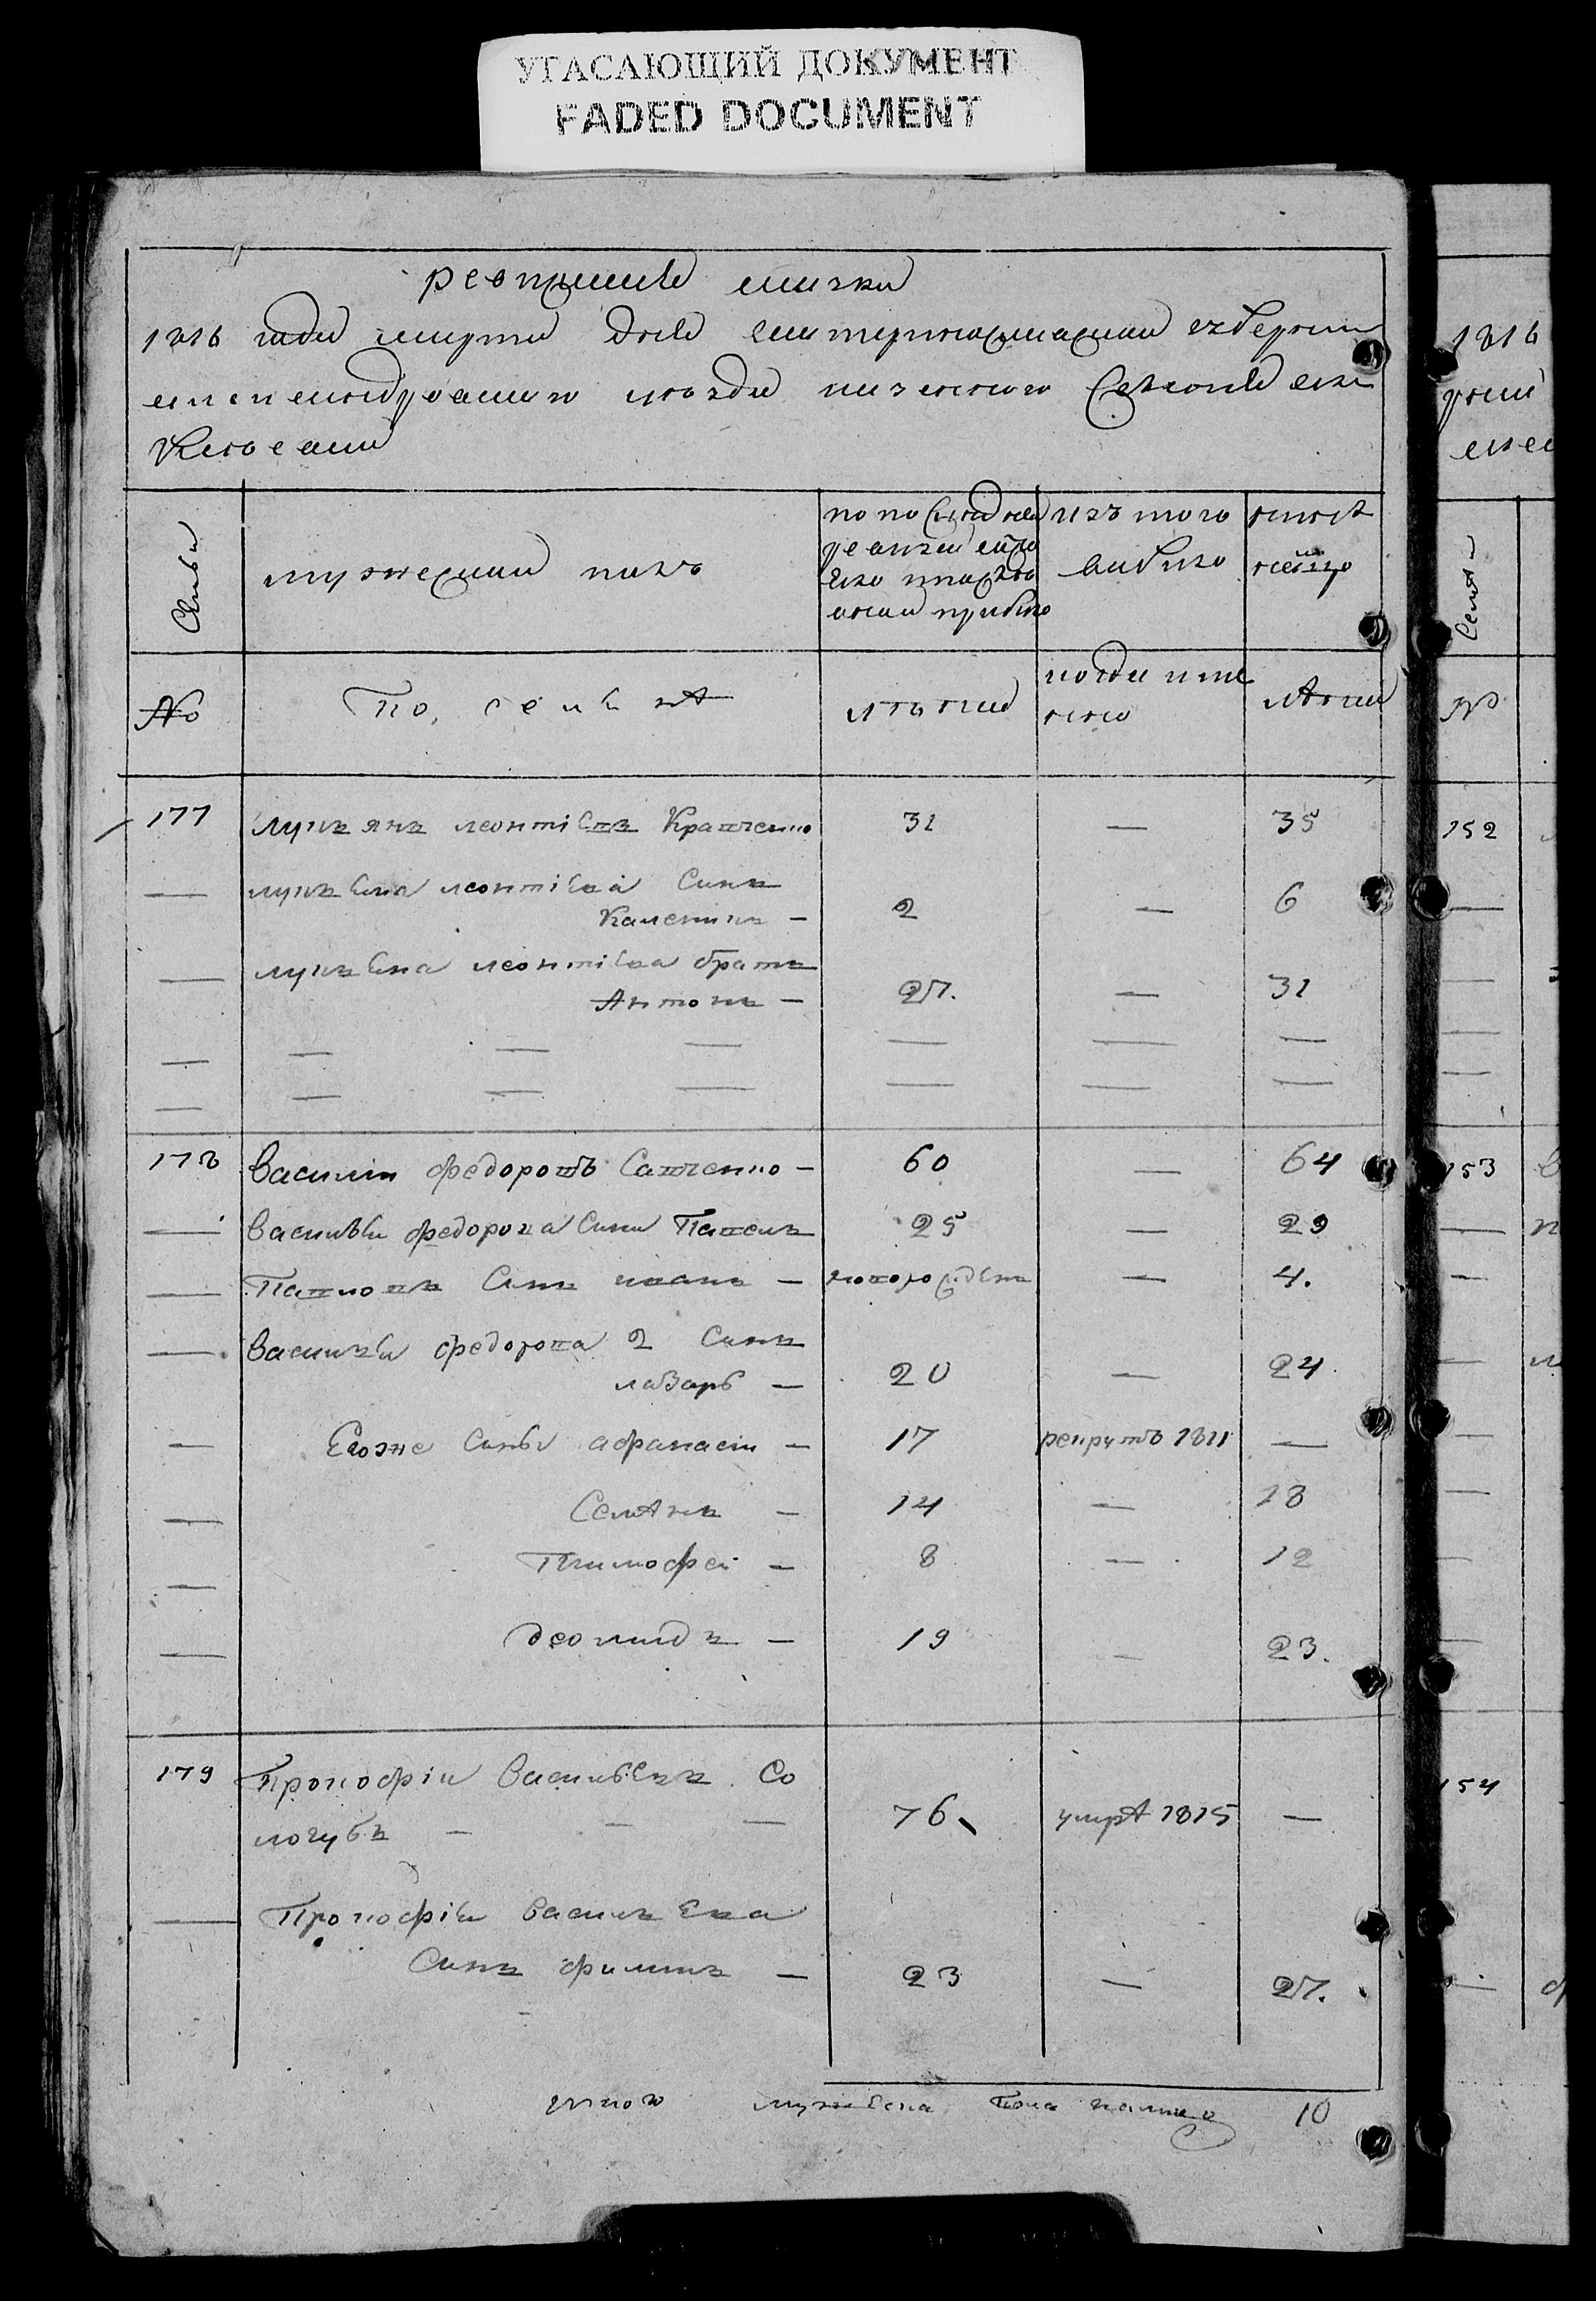 УГАСАЮЩИЙ ДОКУМЕНТ
FADED DOCUMENT
1816 года марта дня екатеринославской губернии
александровского уезда
Семьи
мужеский полъ
по последней
ревизии
изъ того
выбыло
ныне
налицо
№
лета
когда имянно
лета
177
лукъянъ леонтіевъ Кравченко
31
—
35
лукъяна леонтіева Синъ
Калениъ —
2
—
6
лукъяна леонтіева братъ
Антонъ —
27.
—
31
178
василий федоровъ Савченко —
60
—
64
василья федорова Синъ Павелъ
25
—
29
Павловъ Синъ иванъ —
новорожденъ
—
4.
василья федорова 2 Синъ
лазарь —
20
—
24
Егоже Синъ афанасій —
17
рекрутъ 1811
—
Семенъ —
14
—
18
Тимофей —
8
—
12
деомидъ —
19
—
23.
179
Прокофій васильевъ Со
логубъ — — —
76
умре 1815
—
Прокофія васильева
Синъ филипъ —
23
—
27.
итого мужеска пола налицо 10
1816
Семьи
№
152
153
154